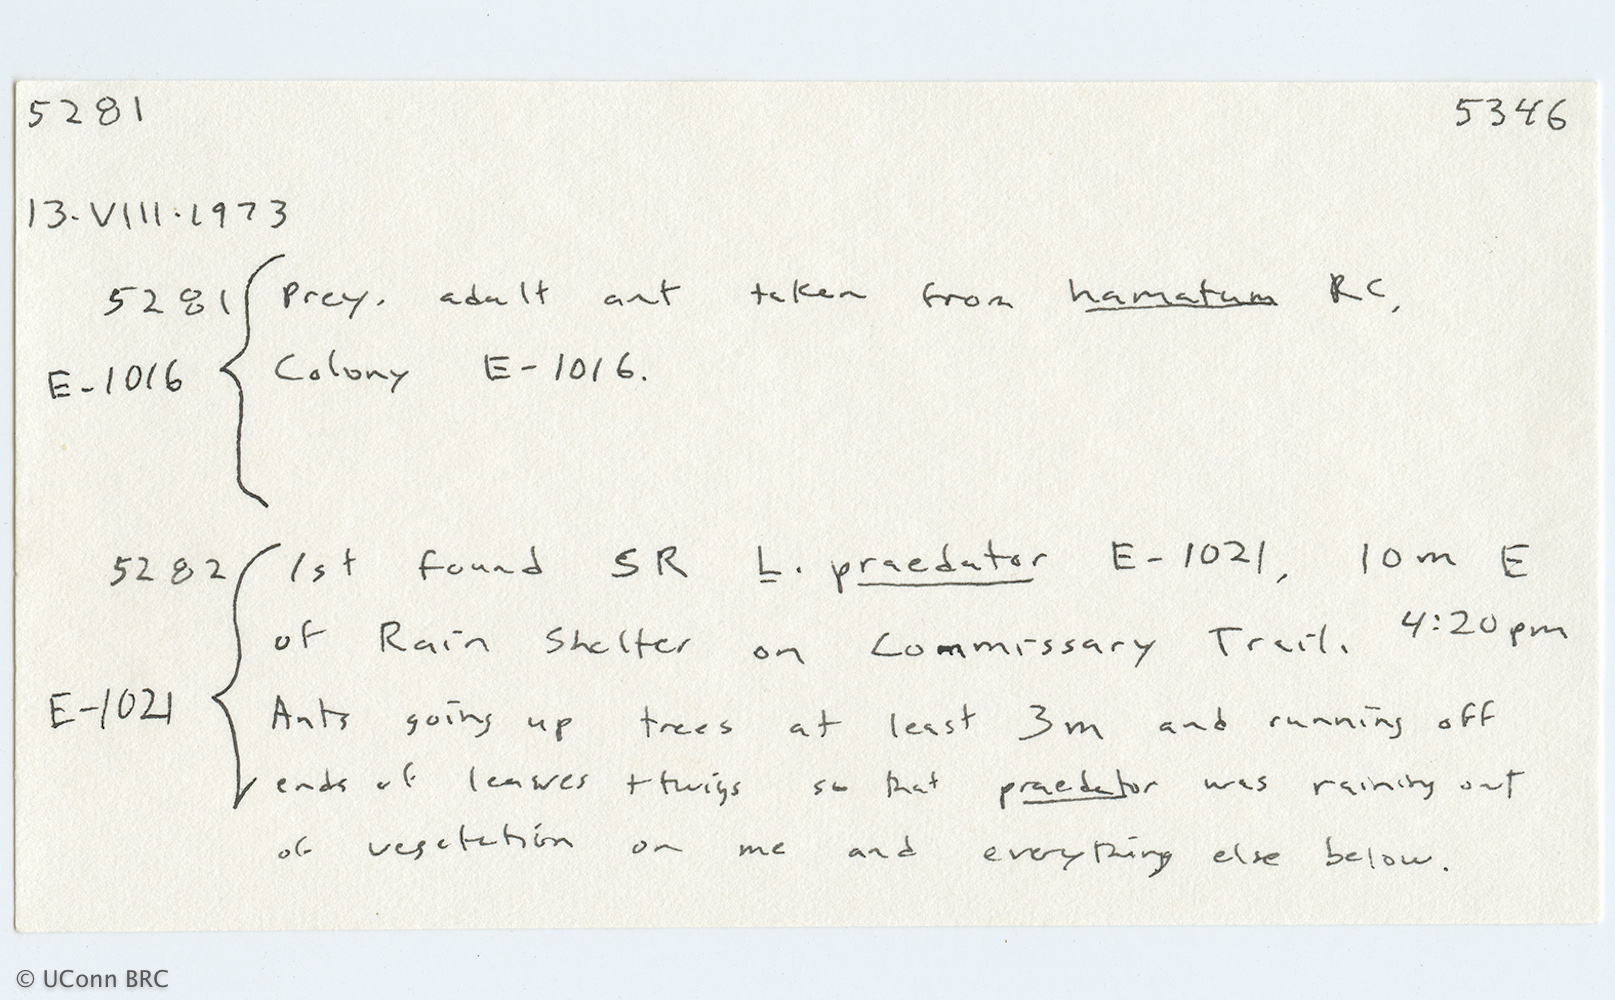 5281 5346
13.VIII.1973
5281 Prey. adult ant taken from hamatum RC,
E-1016 Colony E-1016.
5282 1st found SR L. praedator E-1021, 10m E
of Rain Shelter on Commissary Trail. 4:20pm
E-1021 Ants going up trees at least 3m and running off
ends of leaves + twigs so that praedator was raining out
of vegetation on me and everything else below.
© UConn BRC